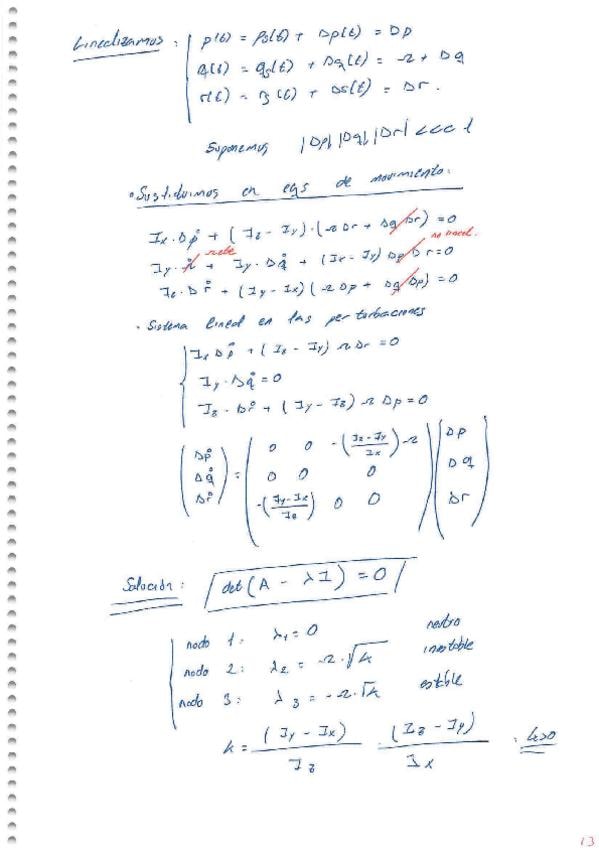 Linealizamos: p(t) = ps(t) + Δp(t) = Δp
q(t) = qs(t) + Δq(t) = Ω + Δq
r(t) = rs(t) + Δr(t) = Δr.
Suponemos |Δp| |Δq| |Δr| <<< 1
• Sustituimos en eqs de movimiento:
Ix·Δṗ + (Iz - Iy)·(ΩΔr + ΔqΔr) = 0
no lineal.
Iy·Ω̇ + Iy·Δq̇ + (Ix - Iy) ΔpΔr = 0
Iz·Δṙ + (Iy - Ix)(ΩΔp + ΔqΔp) = 0
· Sistema lineal en las perturbaciones
Ix Δṗ + (Iz - Iy) ΩΔr = 0
Iy·Δq̇ = 0
Iz·Δṙ + (Iy - Iz) ΩΔp = 0
(Δṗ) = (0 0 -((Iz-Iy)/Ix)Ω) (Δp)
(Δq̇) (0 0 0) (Δq)
(Δṙ) (-((Iy-Ix)/Iz) 0 0) (Δr)
Solución: det(A - λI) = 0
modo 1: λ1 = 0 neutro
modo 2: λ2 = Ω·√k inestable
modo 3: λ3 = -Ω·√k estable
k = (Iy - Ix)/Iz (Iz - Iy)/Ix : k>0
13